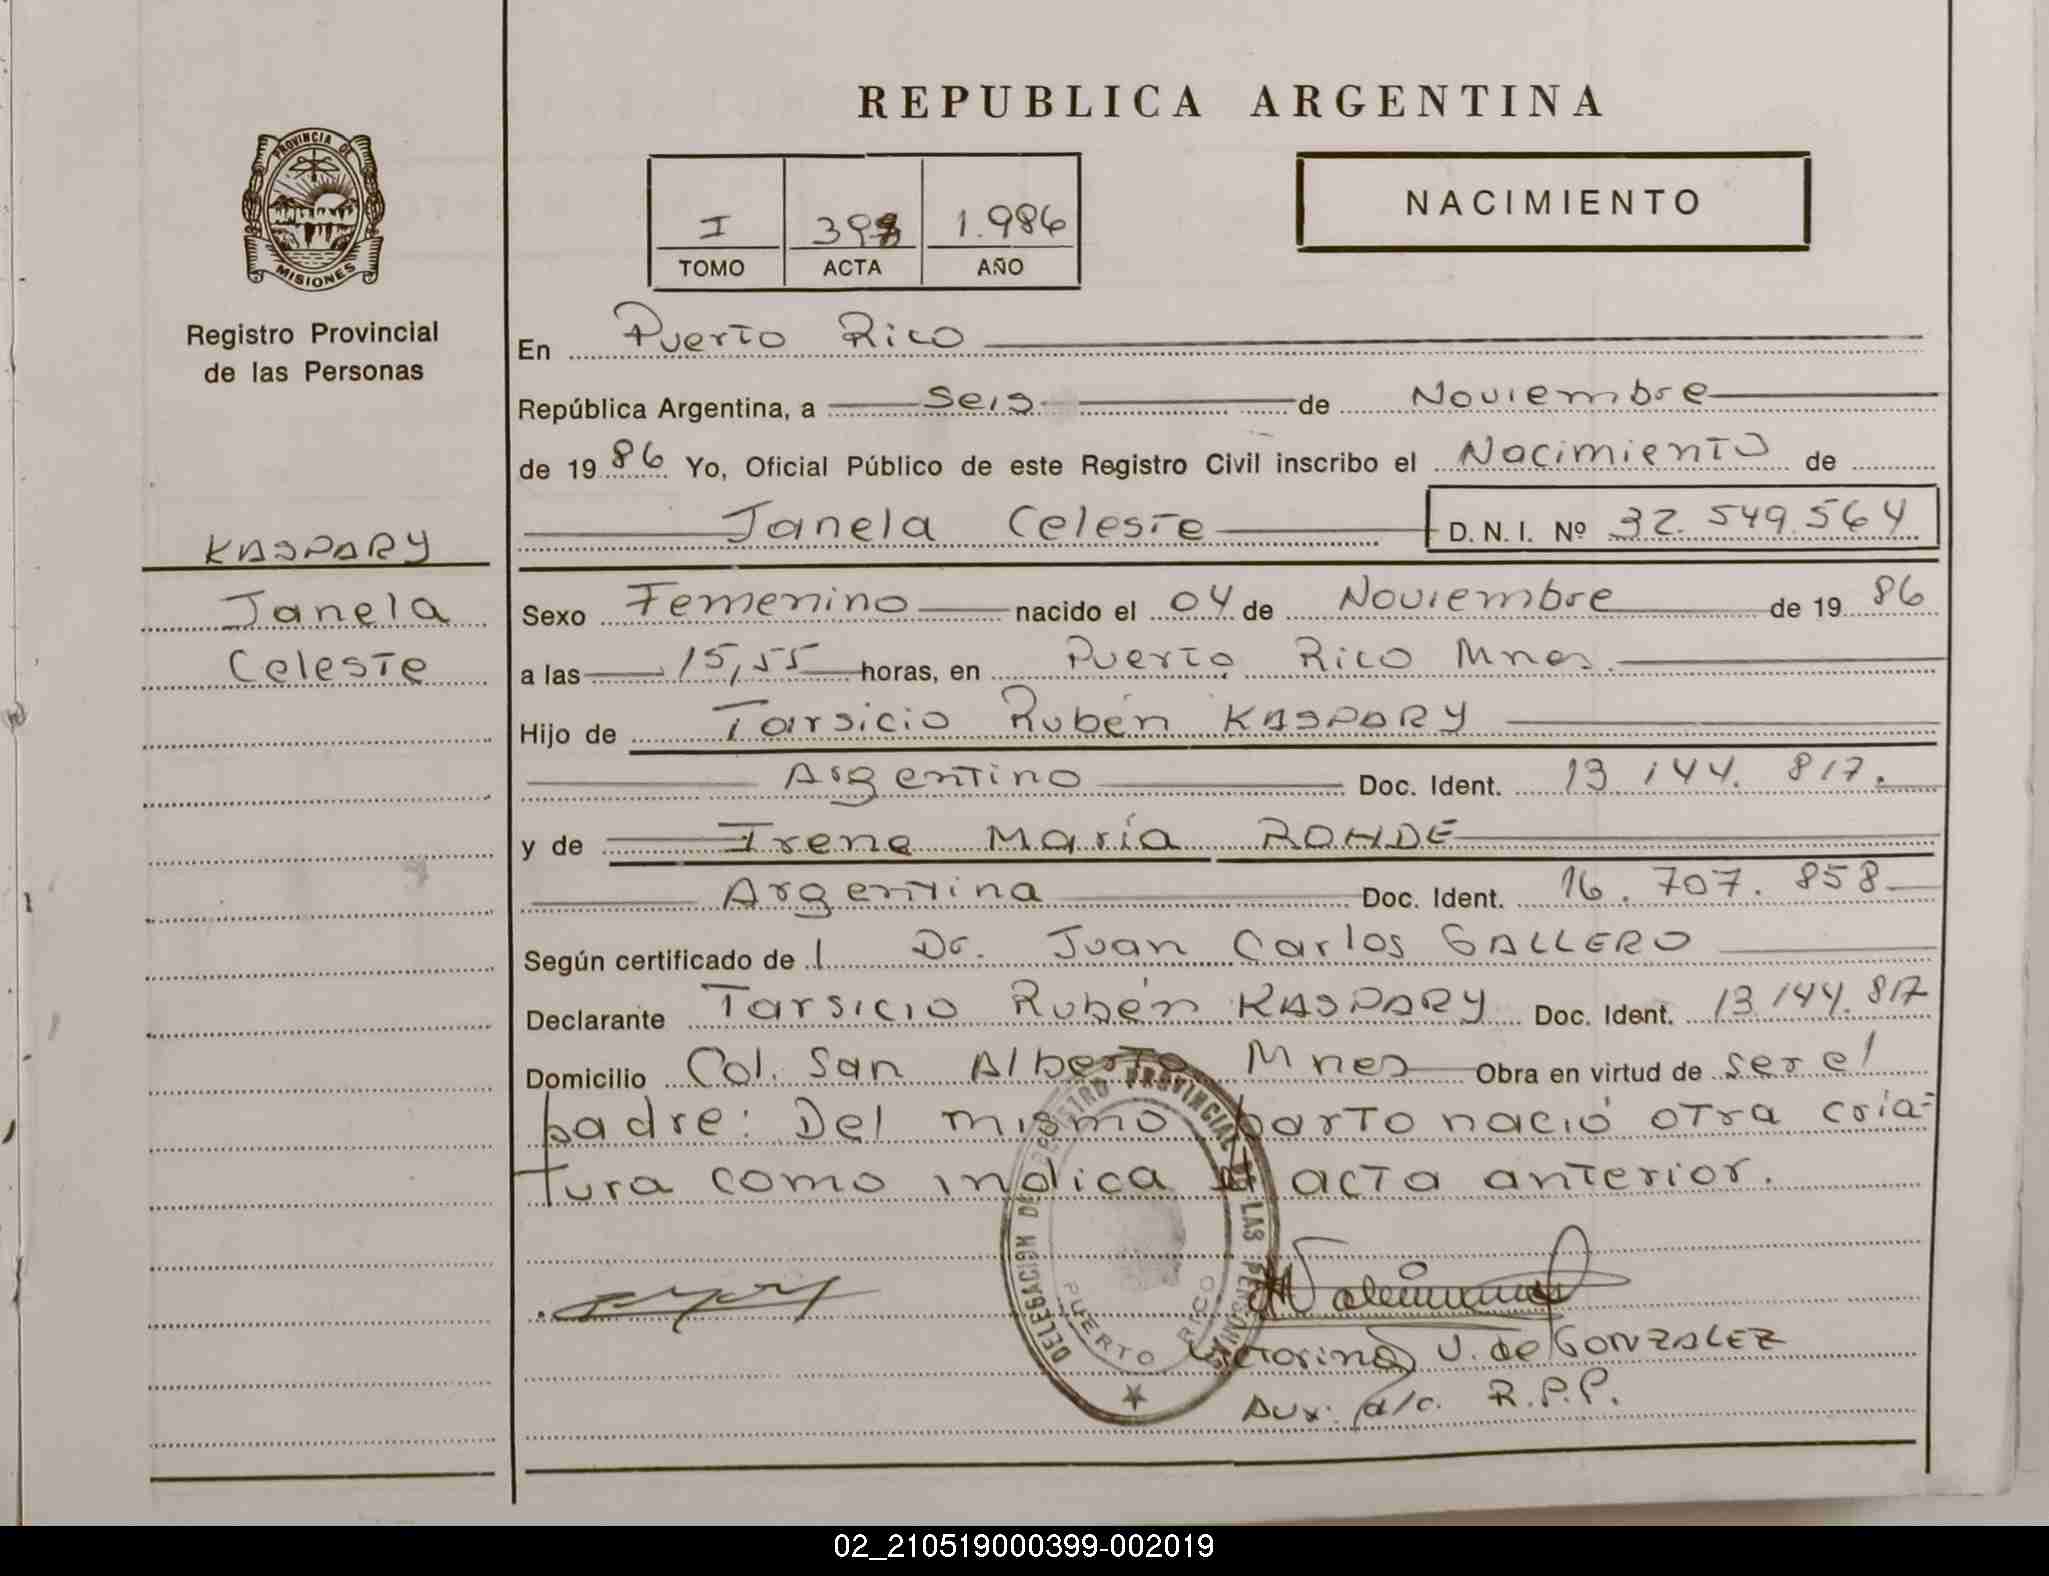 REPUBLICA ARGENTINA
PROVINCIA DE
MISIONES
Registro Provincial
de las Personas
I 1.986
TOMO ACTA AÑO
NACIMIENTO
En Puerto Rico
República Argentina, a Seis de Noviembre
de 19 86 Yo, Oficial Público de este Registro Civil inscribo el Nacimiento de
Janela Celeste D. N. I. Nº 32.549.564
KASPARY
Janela
Celeste
Sexo Femenino nacido el 04 de Noviembre de 19 86
a las 15,55 horas, en Puerto Rico Mnes.
Hijo de Tarsicio Rubén KASPARY
Argentino Doc. Ident. 13 144. 817.
y de Irene María ROHDE
Argentina Doc. Ident. 16. 707. 858
Según certificado de l Dr. Juan Carlos GALLERO
Declarante Tarsicio Rubén KASPARY Doc. Ident. 13 144. 817
Domicilio Col. San Alberto Mnes Obra en virtud de ser el
padre: Del mismo parto nació otra cria=
tura como indica el acta anterior.
DELEGACION DEL REGISTRO PROVINCIAL DE LAS PERSONAS
PUERTO RICO
Victorina V. de GONZALEZ
Aux. a/c. R.P.P.
02_210519000399-002019